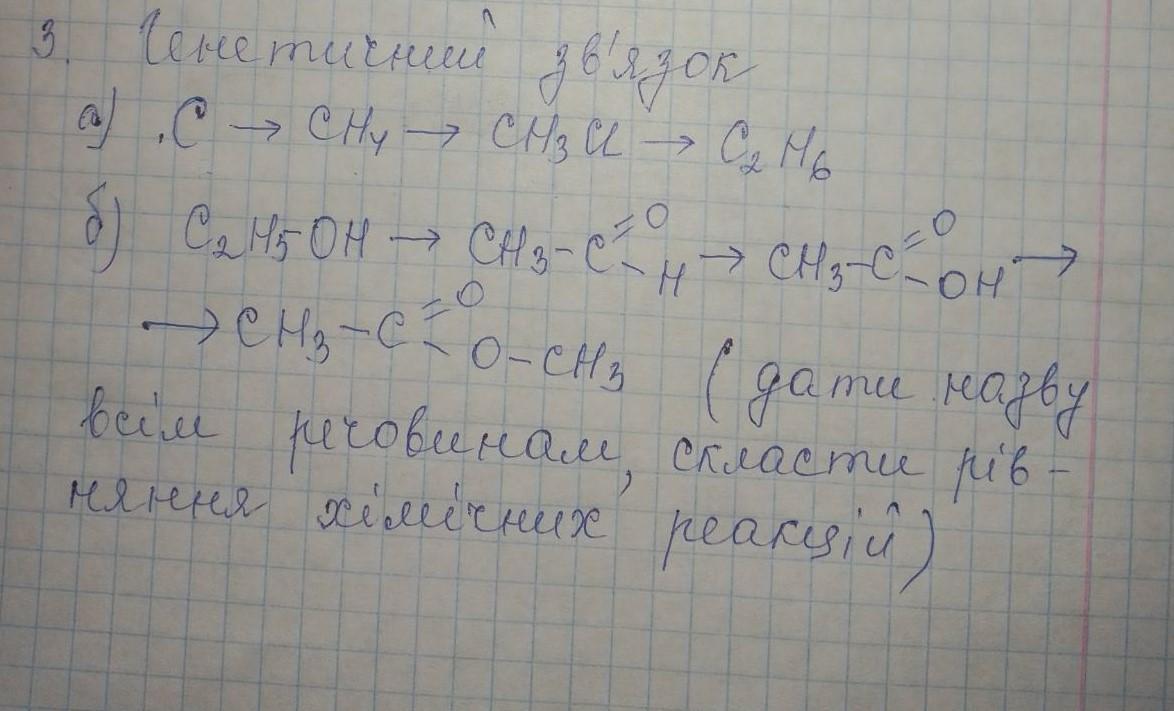 3. Генетичний зв'язок
а) C → CH₄ → CH₃Cl → C₂H₆
б) C₂H₅OH → CH₃-C=O-H → CH₃-C=O-OH →
→ CH₃-C=O-O-CH₃ (дати назву
всім речовинам, скласти рів-
няння хімічних реакцій)